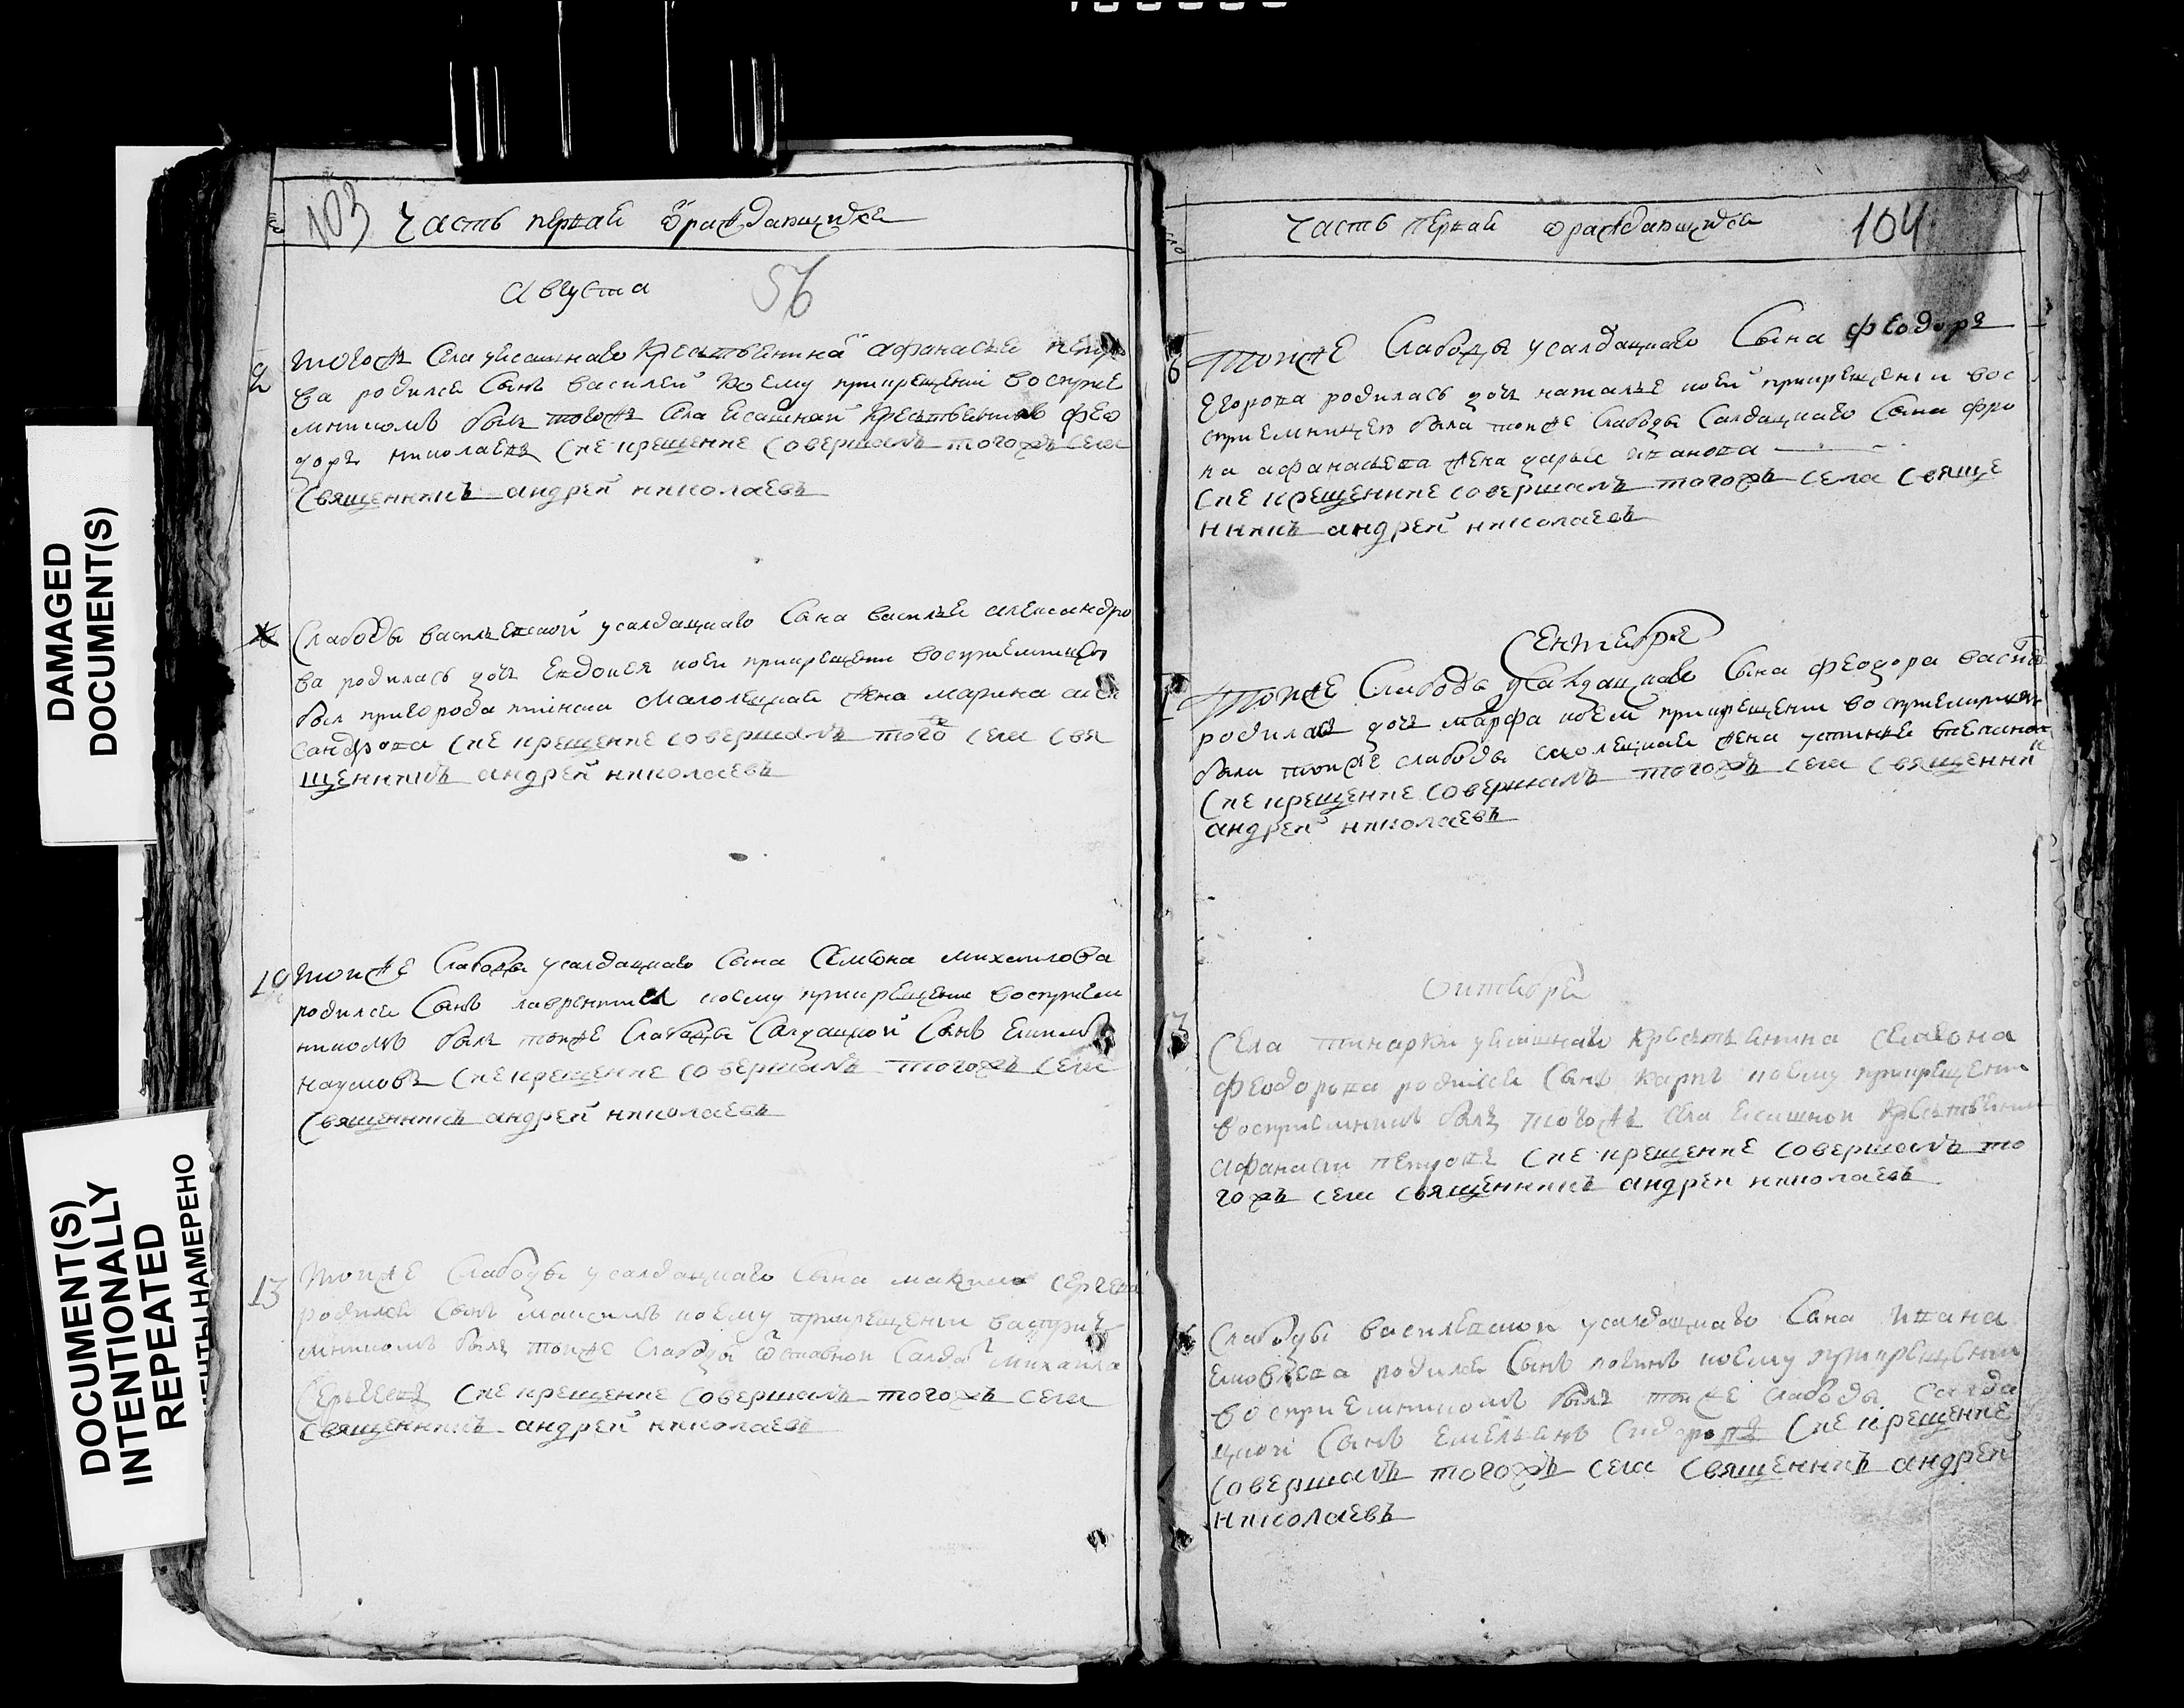 DAMAGED
DOCUMENT(S)
DOCUMENT(S)
INTENTIONALLY
REPEATED
НАМЕРЕНО
103 Часть первая ѿраждающихся
августа 56
тогожъ села уясашнаго крестьянина афанасья петро
ва родился сынъ василей коему прикрещении восприе
мникомъ былъ тогожъ села ясашной крестьянинъ фео
доръ николаевъ сие крещение совершалъ тогожъ села
священникъ андрей николаевъ
слабоды васильевской усалдацкаго сына василья алексндро
ва родилась дочь евдокея коеи прикрещени восприемницею
был пригорода марина алек
сандрова сие крещение совершалъ того села свя
щенникъ андрей николаевъ
10 тойже слабоды усалдацкаго сына семиона михаилова
родился сынъ лаврентиеи коему прикрещении восприем
никомъ былъ тойже слабоды салдацкой сынъ
наумовъ сие крещение совершалъ тогожъ села
священникъ андрей николаевъ
13 тойже слабоды усалдацкаго сына сергева
родился сынъ максимъ коему прикрещении васприе
мникомъ былъ тойже слабоды ѿставной салдаѣ михаила
сергеевъ сие крещение совершалъ тогожъ села
священникъ андрей николаевъ
часть первая ѿраждающихся 104
6 тойже слабоды усалдацкаго сына феодора
егорова родилась дочь наталье коей прикрещени вос
приемницею была тойже слабоды салдацкаго сына фро
ла афанасьева жена дарья иванова
сие крещение совершалъ тогожъ села свяще
нникъ андрей николаевъ
сентебре
тойже слабоды усалдацкаго сына феодора
родилась дочь марфа коей прикрещении восприемницею
была тойже слабоды жена устинья
сие крещение совершалъ тогожъ села священни
андрей николаевъ
октебре
села тинарки уясашнаго крестьянина симеона
феодорова родился сынъ карпъ коему прикрещени
восприемникъ былъ тогожъ села ясашной крестьянин
афанасеи петровъ сие крещение совершалъ то
гожъ села священникъ андреи николаевъ
слабоды васильевской усалдацкаго сына ивана
родился сынъ коему прикрещении
восприемникомъ былъ тойже слабоды салда
цкой сынъ емельянъ сидоровъ сие крещение
совершалъ тогожъ села священникъ андрей
николаевъ